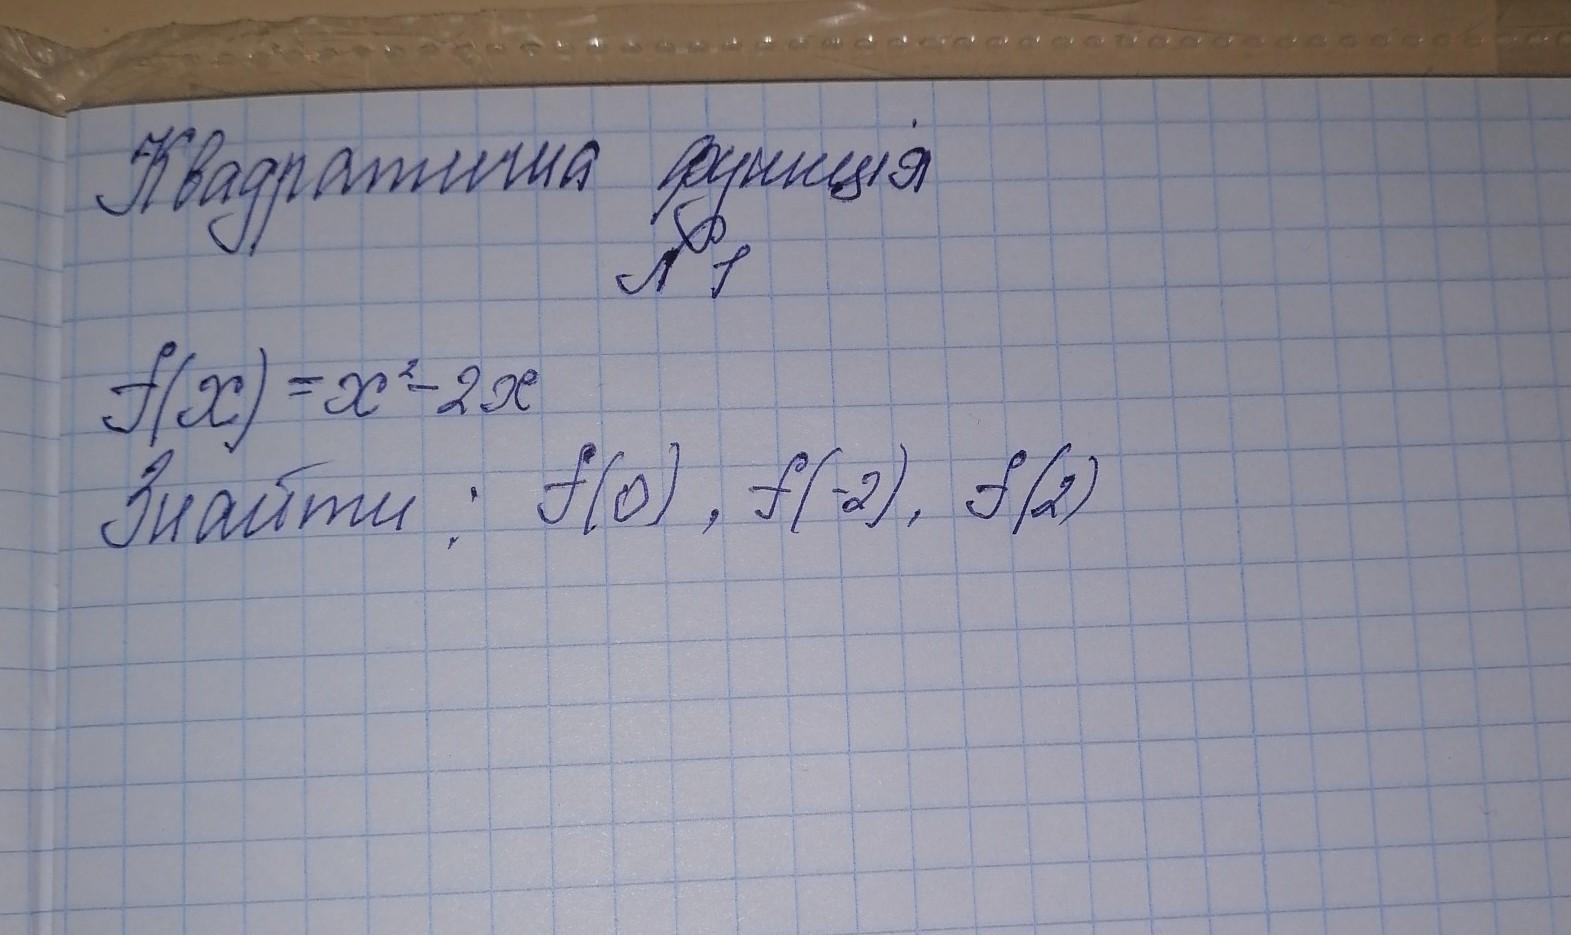 Квадратична функція
№ 1
f(x) = x² - 2x
Знайти : f(0), f(-2), f(2)